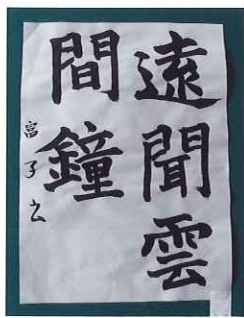 遠聞雲
間鐘
富子书